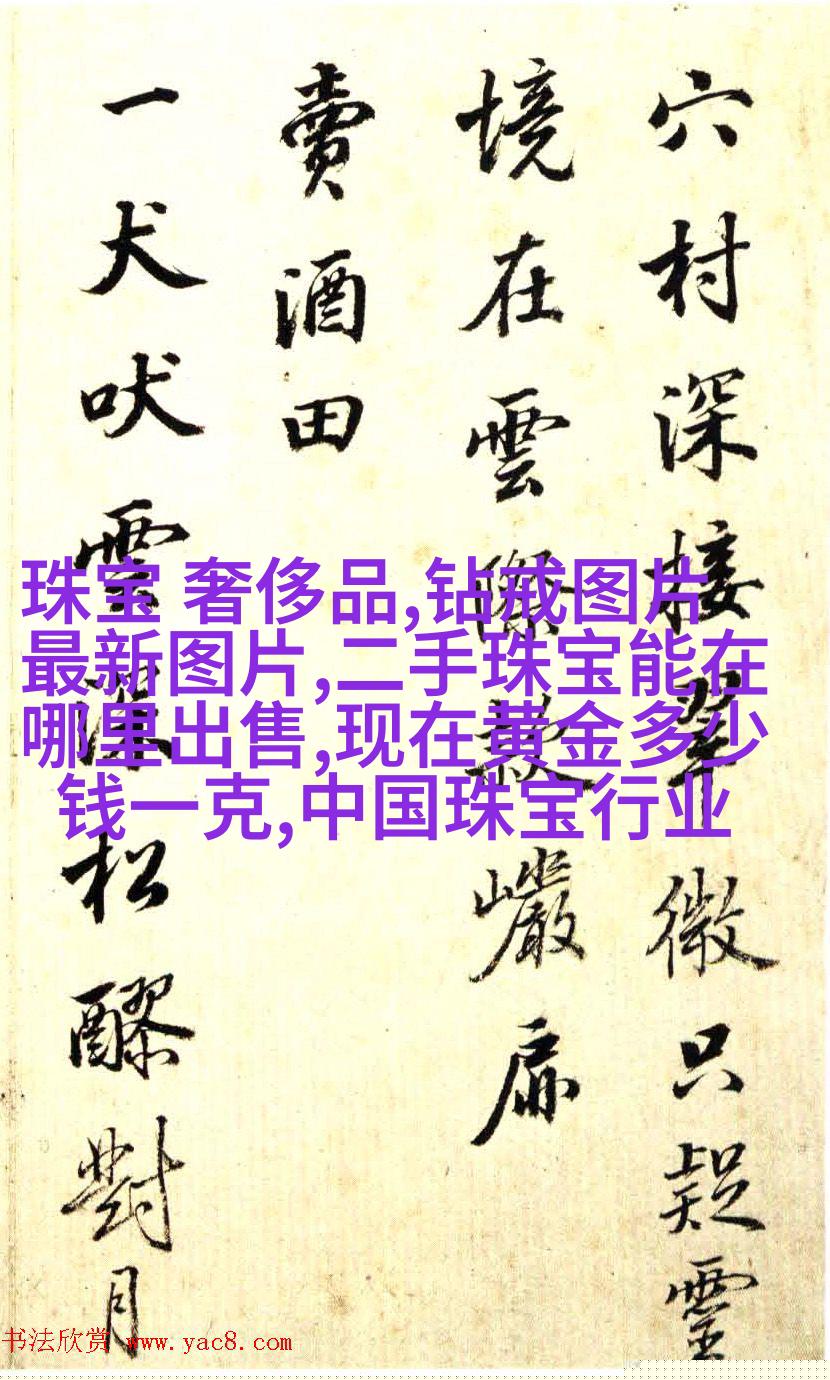 穴村深接翠微只疑靈
境在雲際款巖扉
賣酒田
一犬吠雲深松醪對月
珠宝 奢侈品,钻戒图片
最新图片,二手珠宝能在
哪里出售,现在黄金多少
钱一克,中国珠宝行业
书法欣赏 www.yac8.com